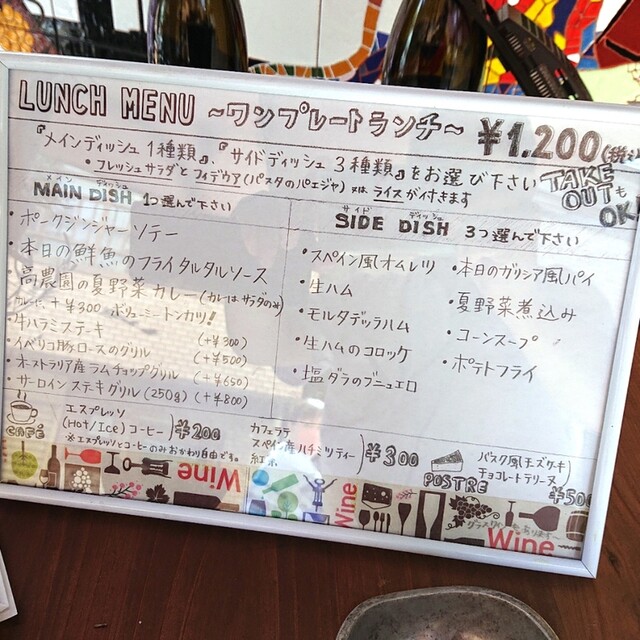 LUNCH MENU ~ワンプレートランチ~ ¥1.200
『メインディッシュ1種類』、『サイドディッシュ3種類』をお選び下さい
・フレッシュサラダとフィデウア(パスタのパエジャ)又はライスが付きます
TAKE OUTも OK!
メイン ディッシュ
MAIN DISH 1つ選んで下さい
・ポークジンジャーソテー
・本日の鮮魚のフライタルタルソース
・高農園の夏野菜カレー(カレーはサラダのみ)
カレー、+¥300 ボリューミートンカツ!!
・牛ハラミステキ (+¥300)
・イベリコ豚ロースのグリル (+¥500)
・オーストラリア産ラムチョップグリル (+¥650)
・サーロインステキグリル(250g) (+¥800)
サイド ディッシュ
SIDE DISH 3つ選んで下さい
・スペイン風オムレツ
・生ハム
・モルタデッラハム
・生ハムのコロッケ
・塩ダラのブニュエロ
・本日のガリシア風パイ
・夏野菜煮込み
・コーンスープ
・ポテトフライ
CAFÉ
エスプレッソ
(Hot/Ice)コーヒー ¥200
※エスプレッソとコーヒーのみおかわり自由です。
カフェラテ
スペイン産ハチミツティー
紅茶 ¥300
POSTRE
バスク風チーズケーキ
チョコレートテリーヌ
¥500
Wine
Wine
Wine